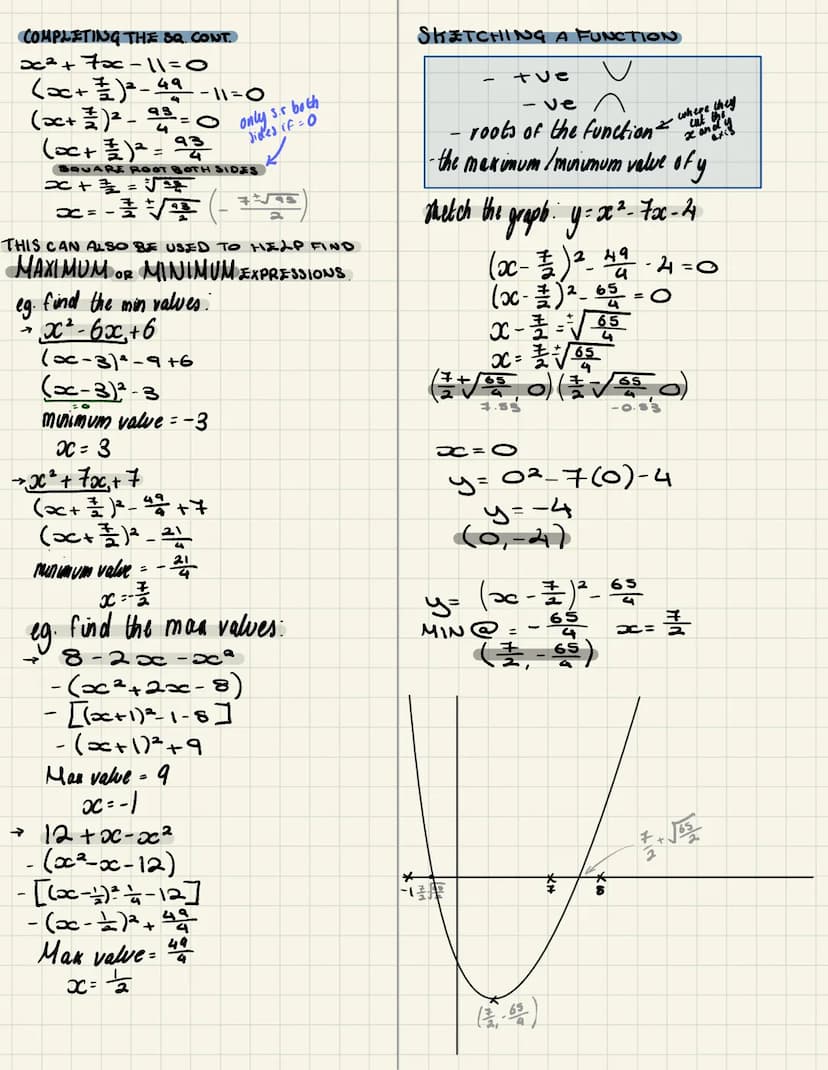 COMPLETING THE SQ. CONT.
x² + 7x - 11 = 0
(x + 7/2)² - 49/4 - 11 = 0
(x + 7/2)² - 93/4 = 0
(x + 7/2)² = 93/4
only s.r both
sides if = 0
SQUARE ROOT BOTH SIDES
x + 7/2 = ±√93/4
x = - 7/2 ± √93/4 (- 7±√93/2)
THIS CAN ALSO BE USED TO HELP FIND
MAXIMUM OR MINIMUM EXPRESSIONS.
eg. find the min values:
→ x² - 6x + 6
(x - 3)² - 9 + 6
(x - 3)² - 3
= 0
minimum value = -3
x = 3
→ x² + 7x + 7
(x + 7/2)² - 49/4 + 7
(x + 7/2)² - 21/4
minimum value = - 21/4
x = - 7/2
eg. find the max values:
→ 8 - 2x - x²
- (x² + 2x - 8)
- [(x+1)² - 1 - 8]
- (x+1)² + 9
Max value = 9
x = -1
→ 12 + x - x²
- (x² - x - 12)
- [(x - 1/2)² - 1/4 - 12]
- (x - 1/2)² + 49/4
Max value = 49/4
x = 1/2
SKETCHING A FUNCTION
- +ve
- ve
- roots of the function
where they
cut the
x and y
axis
- the maximum/minimum value of y
sketch the graph: y = x² - 7x - 4
(x - 7/2)² - 49/4 - 4 = 0
(x - 7/2)² - 65/4 = 0
x - 7/2 = ±√65/4
x = 7/2 ± √65/4
(7/2 + √65/4, 0) (7/2 - √65/4, 0)
7.53 -0.53
x = 0
y = 0² - 7(0) - 4
y = -4
(0, -4)
y = (x - 7/2)² - 65/4
MIN @ = - 65/4 x = 7/2
(7/2, - 65/4)
7/2 + √65/2
-1 7 8
(7/2, - 65/4)